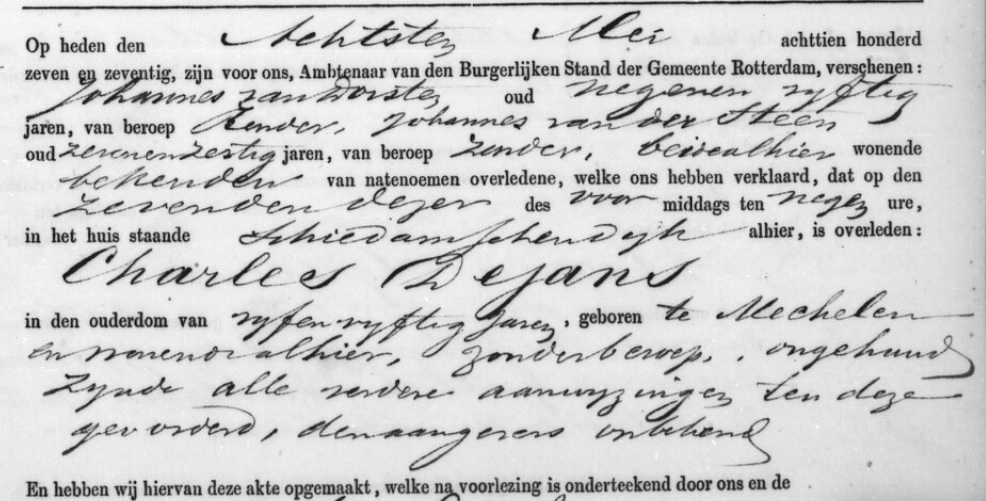 Op heden den Achtsten Mei achttien honderd
zeven en zeventig, zijn voor ons, Ambtenaar van den Burgerlijken Stand der Gemeente Rotterdam, verschenen:
Johannes van Dorsten oud negenen vyftig
jaren, van beroep zonder, Johannes van der Steen
oud zevenenzestig jaren, van beroep zonder, beiden alhier wonende
bekenden van natenoemen overledene, welke ons hebben verklaard, dat op den
zevenden dezer des voor middags ten negen ure,
in het huis staande Schiedamschendyk alhier, is overleden:
Charles Dejans
in den ouderdom van vyfenvyftig jaren, geboren te Mechelen
en wonend alhier, zonder beroep, ongehuwd
zynde alle verdere aanwyzingen ten deze
gevorderd, den aangevers onbekend
En hebben wij hiervan deze akte opgemaakt, welke na voorlezing is onderteekend door ons en de